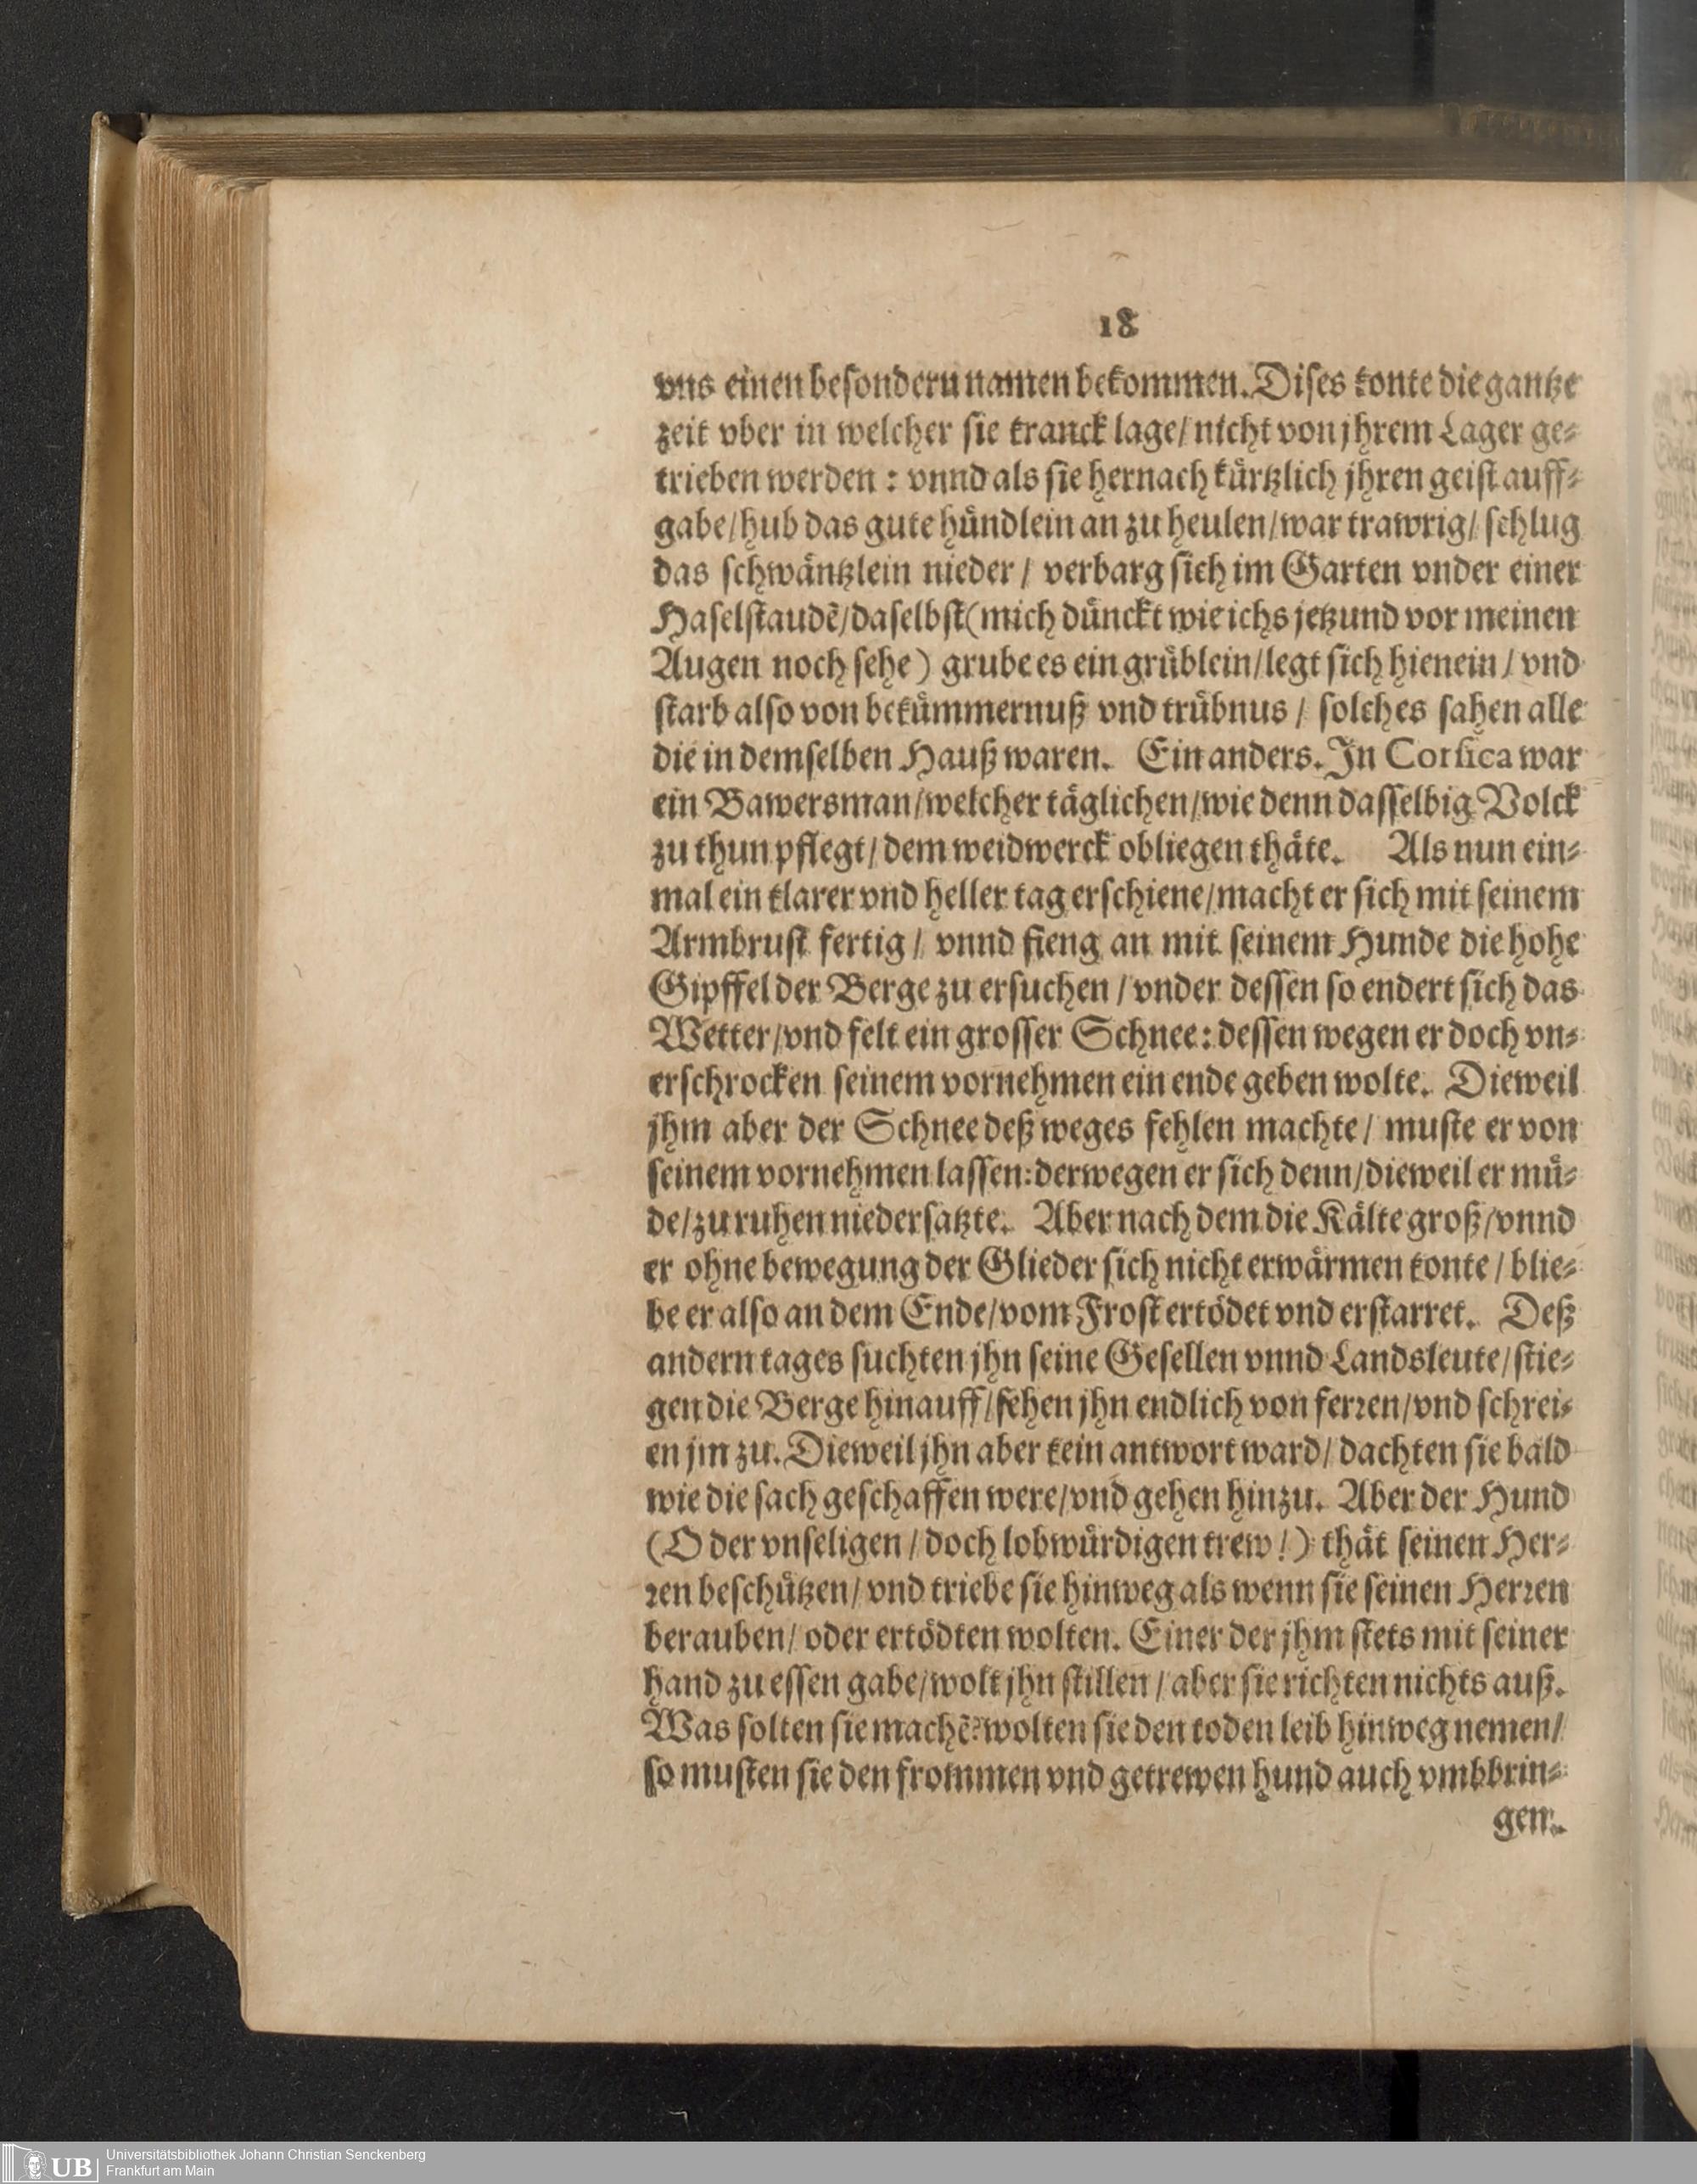 18
vns einen besondern namen bekommen. Dises konte die gantze
zeit vber in welcher sie kranck lage/ nicht von jhrem Lager ge-
trieben werden: vnnd als sie hernach kürtzlich jhren geist auff-
gabe/ hub das gute hündlein an zu heulen/ war trawrig/ schlug
das schwäntzlein nieder/ verbarg sich im Garten vnder einer
Haselstaudẽ/ daselbst (mich dünckt wie ichs jetzund vor meinen
Augen noch sehe) grube es ein grüblein/ legt sich hienein/ vnd
starb also von bekümmernuß vnd trübnus/ solches sahen alle
die in demselben Hauß waren. Ein anders. In Corsica war
ein Bawersman/ welcher täglichen/ wie denn dasselbig Volck
zu thun pflegt/ dem weidwerck obliegen thäte. Als nun ein-
mal ein klarer vnd heller tag erschiene/ macht er sich mit seinem
Armbrust fertig/ vnnd fieng an mit seinem Hunde die hohe
Gipffel der Berge zu ersuchen/ vnder dessen so endert sich das
Wetter/ vnd felt ein grosser Schnee: dessen wegen er doch vn-
erschrocken seinem vornehmen ein ende geben wolte. Dieweil
jhm aber der Schnee deß weges fehlen machte/ muste er von
seinem vornehmen lassen: derwegen er sich denn/ dieweil er mü-
de/ zu ruhen niedersatzte. Aber nach dem die Kälte groß/ vnnd
er ohne bewegung der Glieder sich nicht erwärmen konte/ blie-
be er also an dem Ende/ vom Frost ertödet vnd erstarret. Deß
andern tages suchten jhn seine Gesellen vnnd Landsleute/ stie-
gen die Berge hinauff/ sehen jhn endlich von ferren/ vnd schrei-
en jm zu. Dieweil jhn aber kein antwort ward/ dachten sie bald
wie die sach geschaffen were/ vnd gehen hinzu. Aber der Hund
(O der vnseligen/ doch lobwürdigen trew!) thät seinen Her-
ren beschützen/ vnd triebe sie hinweg als wenn sie seinen Herren
berauben/ oder ertödten wolten. Einer der jhm stets mit seiner
hand zu essen gabe/ wolt jhn stillen/ aber sie richten nichts auß.
Was solten sie machẽ? wolten sie den toden leib hinweg nemen/
so musten sie den frommen vnd getrewen hund auch vmbbrin-
gen.
UB
Universitätsbibliothek Johann Christian Senckenberg
Frankfurt am Main